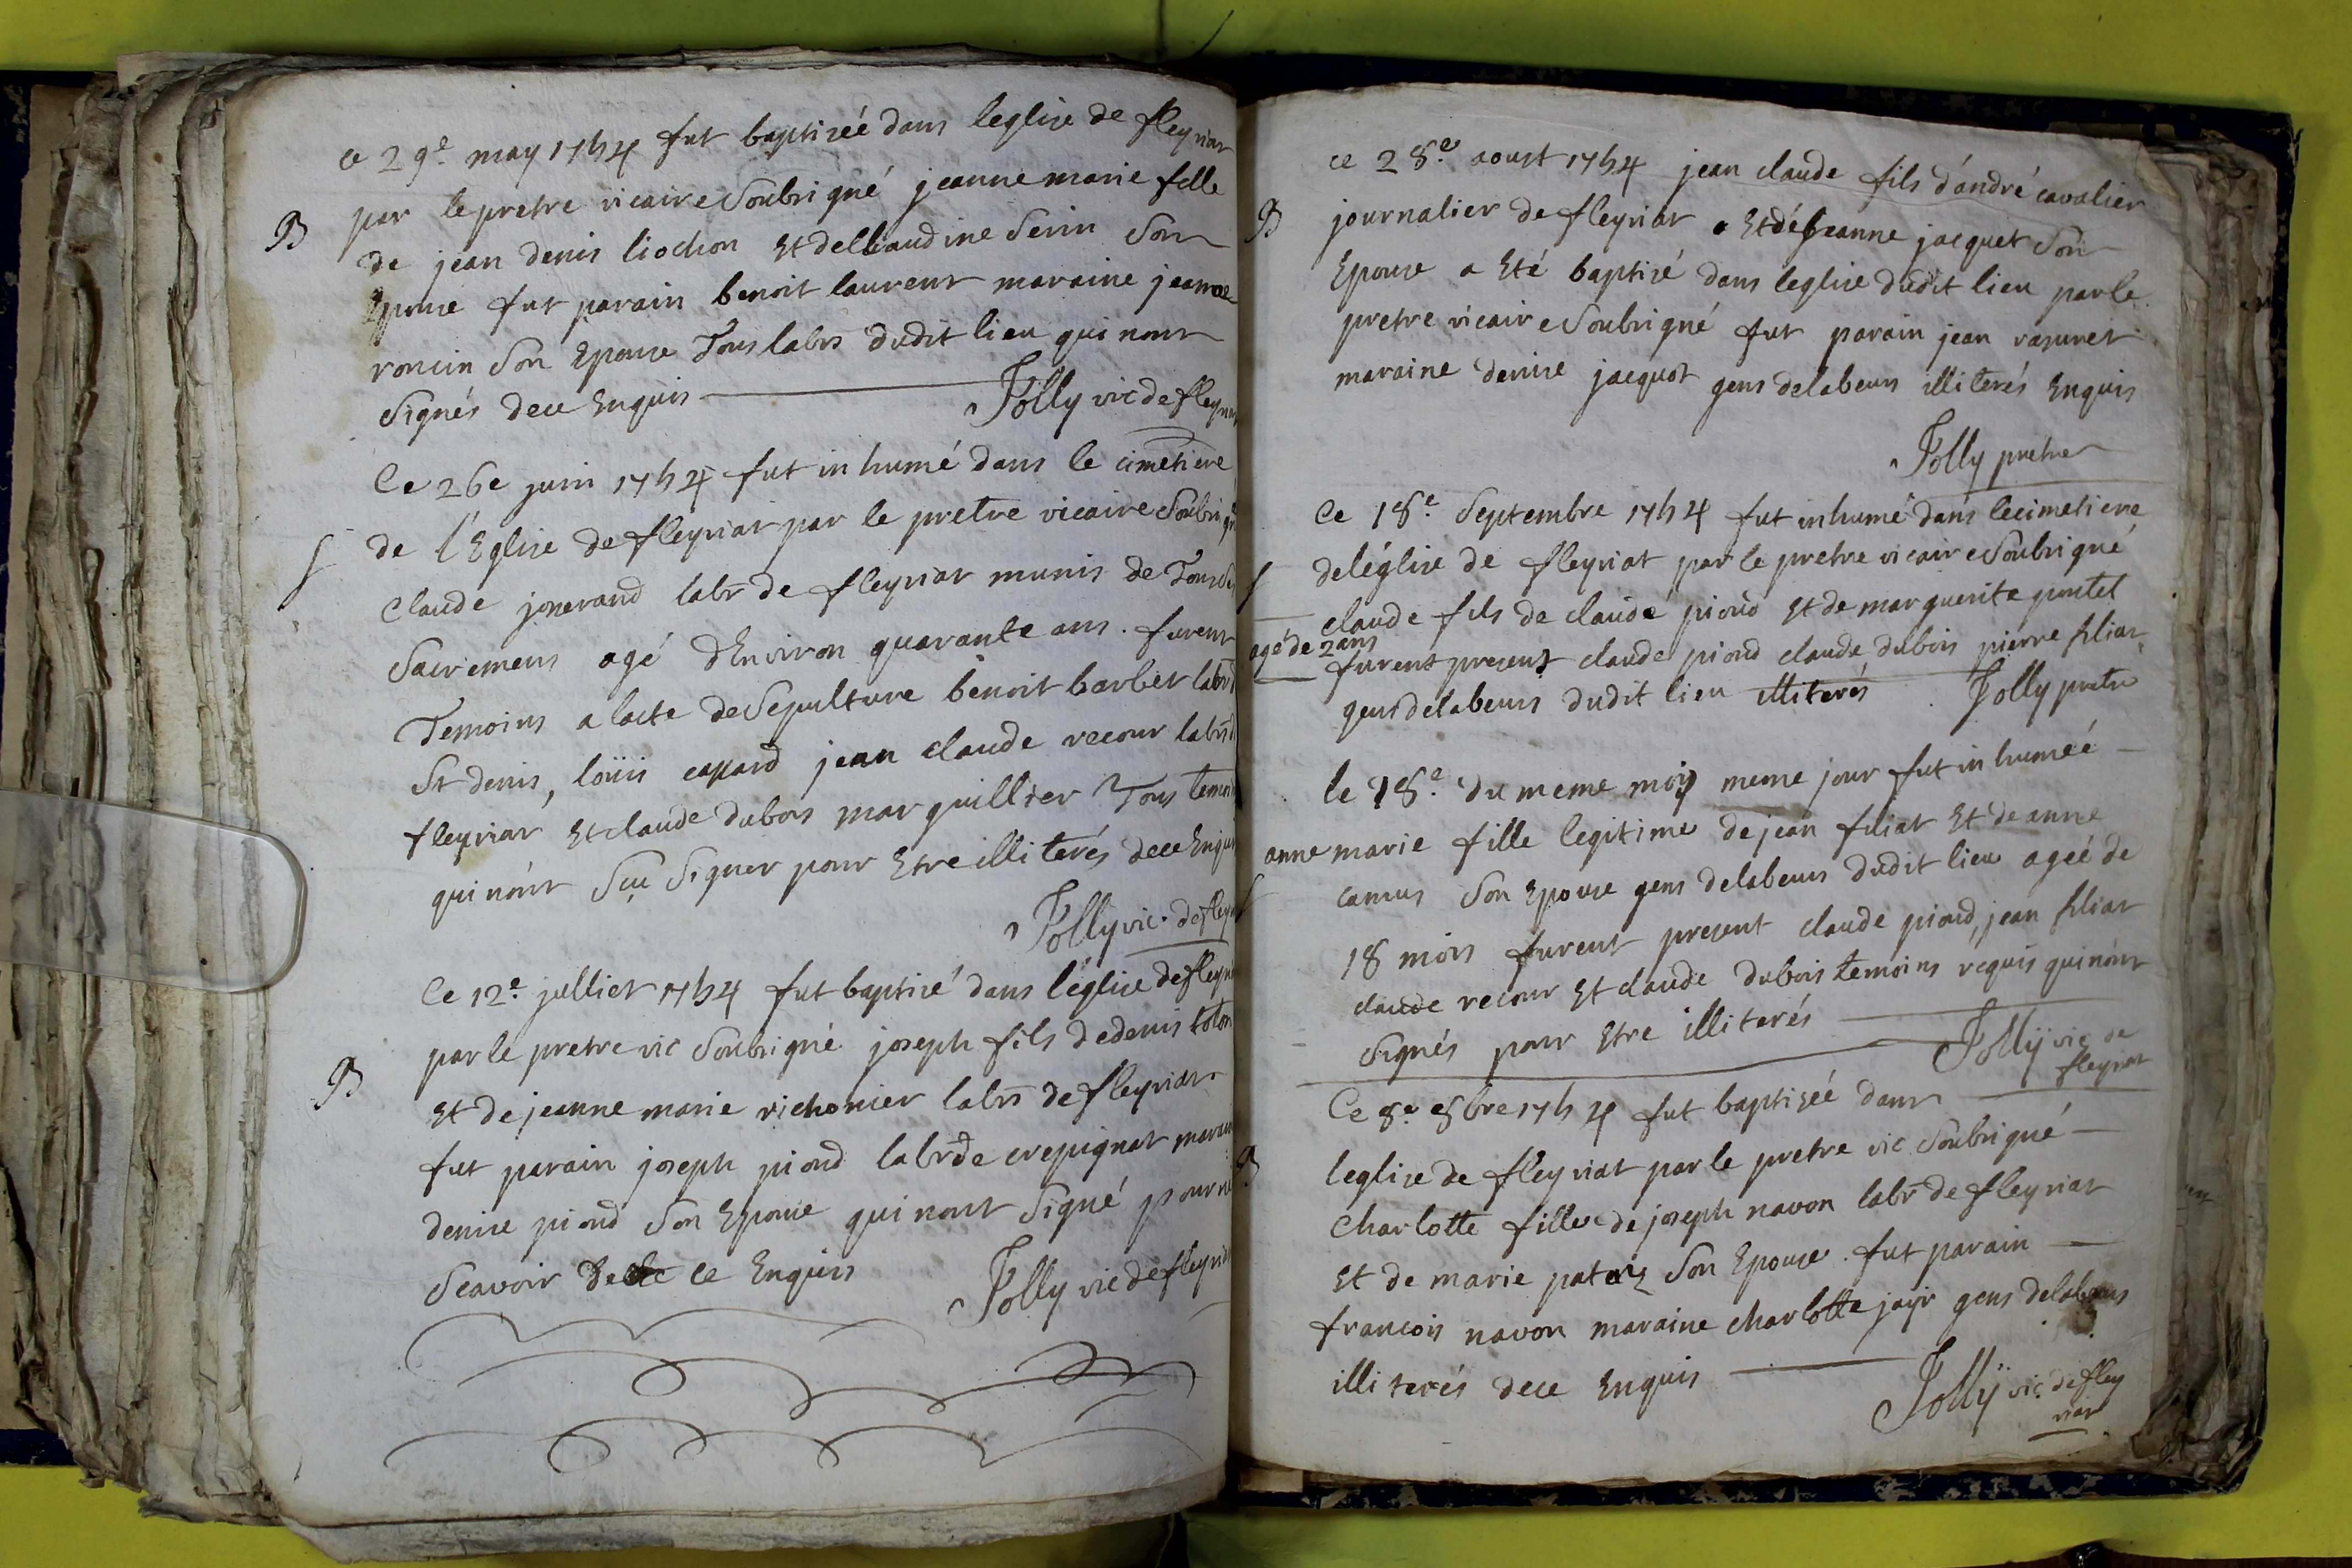 ce 29e may 1754 fut baptizéé dans leglise de fleyriat
par le pretre vicaire Soubsigné jeanne marie fille
B
de jean denis liochon Et de Claudine Serin Son
Epouse fut parain benoit laurent maraine jeanne
roncin Son Epouse Tous labrs dudit lieu qui nont
Signés de ce Enquis
Jolly vic de fleyriat
Ce 26e juin 1754 fut in humé dans le cimetiere
de l'Eglise de fleyriat par le pretre vicaire Soubsigné
S
Claude joserand labr de fleyriat munis de Tous Ses
Sacremens agé dEnviron quarante ans. furent
Temoins a lacte de Sepulture benoit barbet labr d
St denis, loüis cassard jean claude recour labrs d
fleyriat Et claude dubois marguillier Tous temoin
qui nónt Sçu Signer pour Etre illiterés de ce Enquis
Jolly vic. de fley
Ce 12e jullier 1754 fut baptisé dans l'église de fleyri
par le pretre vic Soubsigné joseph fils de denis tolon
B
Et de jeanne marie richonier labrs de fleyriat
fut parain joseph piond labr de crepignat marain
denise piond Son Epouse qui nont Signé pour ne
Scavoir de ce Enquis
Jolly vic de fleyriat
ce 28e aoust 1754 jean claude fils dándré cavalier
B
journalier de fleyriat Et de jeanne jacquet Son
Epouse a Eté baptisé dans leglise dudit lieu par le
pretre vicaire Soubsigné fut parain jean rasuret
maraine denise jacquot gens de labeurs illiterés Enquis
Jolly pretre
Ce 18e Septembre 1754 fut inhumé dans le cimetiere
de léglise de fleyriat par le pretre vicaire Soubsigné
S
claude fils de claude pioud Et de marguerite pontet
agé de 2 ans
furent present claude piond claude dubois pierre filiat
gens de labeurs dudit lieu illiterés Jolly pretre
le 18e du meme mois meme jour fut in huméé
anne marie fille legitime de jean filiat Et de anne
S
camus Son Epouse gens de labeurs dudit lieu ageé de
18 mois furent present claude piond, jean filiat
claude recour Et claude dubois temoins requis qui nónt
Signés pour Etre illiterés
Jolly vic de
fleyriat
Ce 8e 8bre 1754 fut baptiséé dans
leglise de fleyriat par le pretre vic Soubsigné
B
Charlotte fille de joseph navon labr de fleyriat
Et de marie patois Son Epouse. fut parain
francois navon maraine charlotte jayr gens de labeurs
illiterés de ce Enquis
Jolly vic de fley
riat